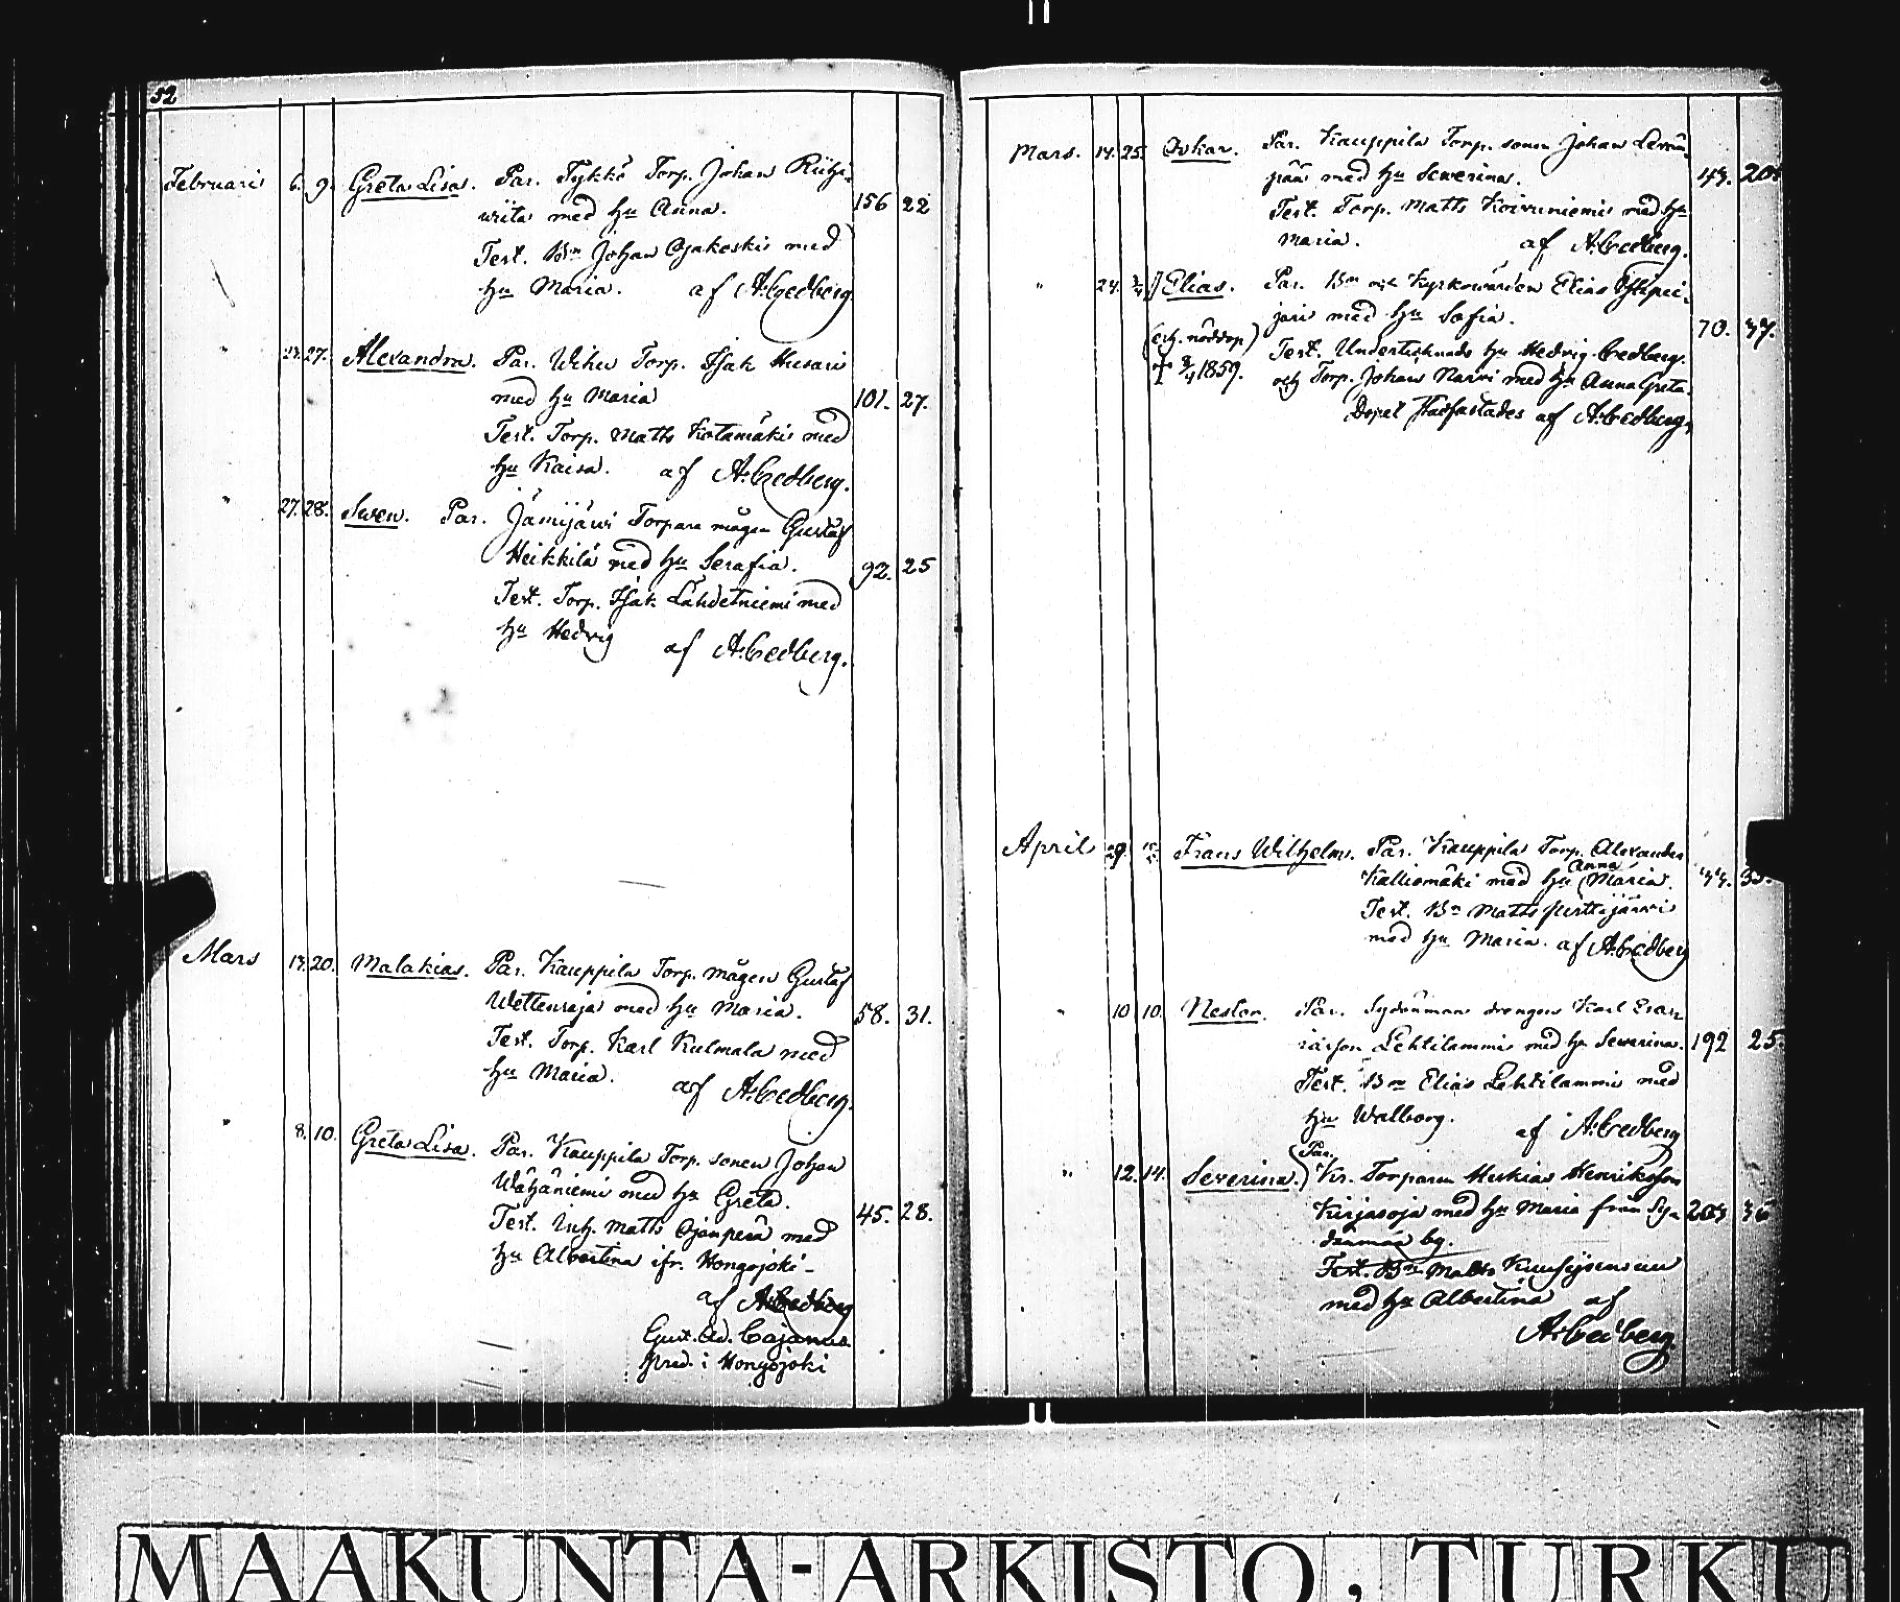 52
Februari 6. 9. Greta Lisa. Par. Jykkö Torp. Johan Riihi-
wiita med hu Anna. 156 22
Test. Bn Johan Ojakoski med
hu Maria. af A:Cedberg
" 27. Alexandra. Par. Wihu Torp. Isak Husari
med hu Maria 101. 27.
Test. Torp. Matts Kotamäki med
hu Kaisa. af A:Cedberg.
" 27. 28. Swen. Par. Jämijärwi Torpare mågen Gustaf
Heikkilä med hu Serafia. 92. 25
Test. Torp. Isak Lähdetniemi med
hu Hedvig af A:Cedberg.
Mars 20. Malakias. Par. Kauppila Torp. mågen Gustaf
Wettenoja med hu Maria. 58. 31.
Test. Torp. Karl Kulmala med
hu Maria. af A:Cedberg.
" 8. 10. Greta Lisa. Par. Kauppila Torp. sonen Johan
Wähäniemi med hu Greta. 45. 28.
Test. Inh. Matts Ojanperä med
hu Albertina ifr. Hongojoki
af A:Cedberg
Gust. Ad. Cajanus
pred. i Hongojoki
Mars. 14. 25. Oskar. Par. Kauppila Torp. sonen Johan
med hu Sewerina. 20
Test. Torp. Matts Koivuniemi med hu
Maria. af A:Cedberg.
" 24. Elias. Par. Bn och Kyrkowärden Elias
med hu Sofia. 70.
(ech. nöddop) Test. Undertecknads hu Hedvig Cedberg.
1859. och Torp. Johan Narvi med hu Anna Greta.
Dopet stadfästades af A:Cedberg.
April 29. Frans Wilhelm. Par. Kauppila Torp. Alexander
Kalliomäki med hu Anna Maria.
Test. Bn Matts Perttijärwi
med hu Maria. af A:Cedberg
" 10 10. Nestor. Par. Sydänmaa drengen Karl
Lehtilammi med hu Sewerina. 192 25.
Test. Bn Elias Lehtilammi med
hu Walborg. af A:Cedberg
" 12. 14. Severina. Par.
Kr. Torparen Heskias Henriksson
Kirjasoja med hu Maria från Sy-
dänmaa by.
Test. Bn Matts
med hu Albertina af
A:Cedberg
MAAKUNTA-ARKISTO, TURKU